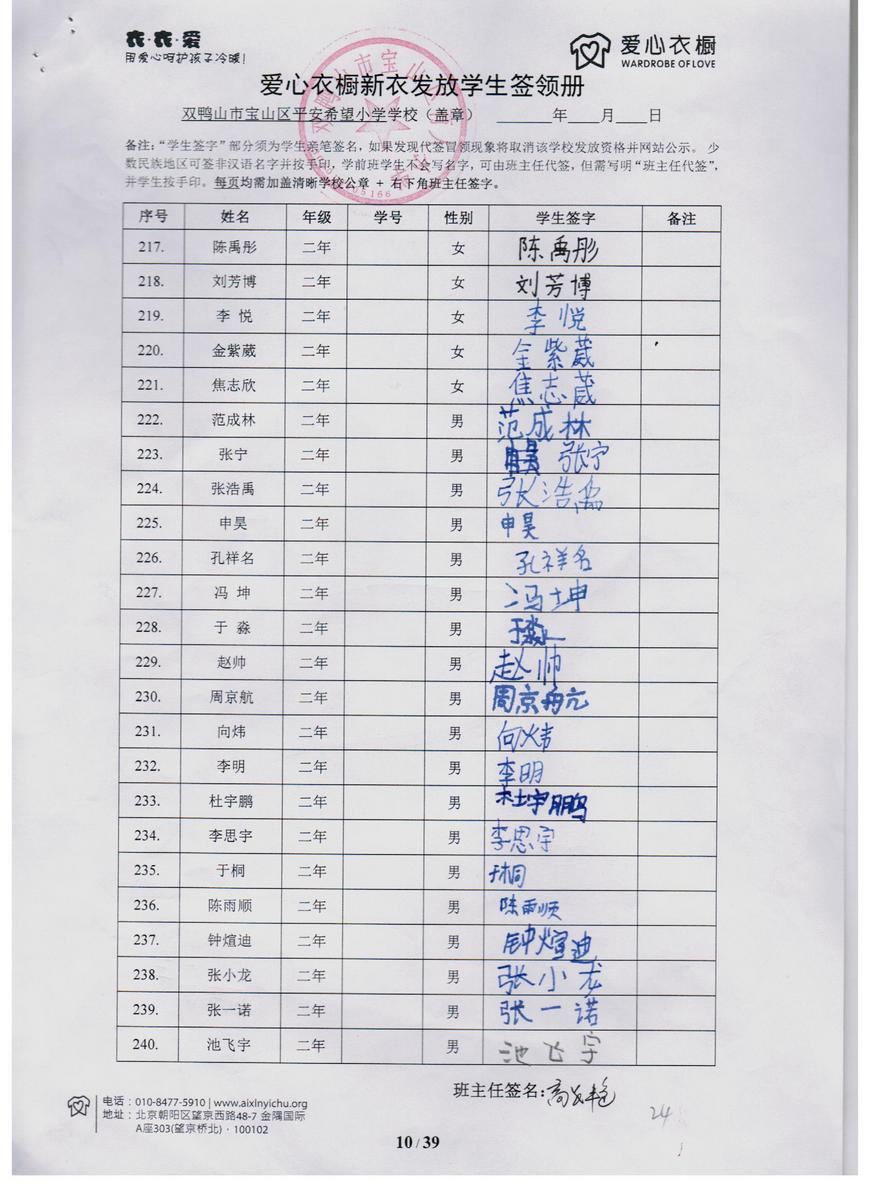 衣·衣·爱
用爱心呵护孩子冷暖！
爱心衣橱
WARDROBE OF LOVE
爱心衣橱新衣发放学生签领册
双鸭山市宝山区平安希望小学学校（盖章） ______年____月____日
备注：“学生签字”部分须为学生亲笔签名，如果发现代签冒领现象将取消该学校发放资格并网站公示。 少
数民族地区可签非汉语名字并按手印，学前班学生不会写名字，可由班主任代签，但需写明“班主任代签”，
并学生按手印。每页均需加盖清晰学校公章 + 右下角班主任签字。
序号 姓名 年级 学号 性别 学生签字 备注
217. 陈禹彤 二年 女 陈禹彤
218. 刘芳博 二年 女 刘芳博
219. 李 悦 二年 女 李悦
220. 金紫葳 二年 女 金紫葳
221. 焦志欣 二年 女 焦志葳
222. 范成林 二年 男 范成林
223. 张宁 二年 男 张宁
224. 张浩禹 二年 男 张浩禹
225. 申昊 二年 男 申昊
226. 孔祥名 二年 男 孔祥名
227. 冯 坤 二年 男 冯坤
228. 于 淼 二年 男 于淼
229. 赵帅 二年 男 赵帅
230. 周京航 二年 男 周京航
231. 向炜 二年 男 向炜
232. 李明 二年 男 李明
233. 杜宇鹏 二年 男 杜宇鹏
234. 李思宇 二年 男 李思宇
235. 于桐 二年 男 于桐
236. 陈雨顺 二年 男 陈雨顺
237. 钟煊迪 二年 男 钟煊迪
238. 张小龙 二年 男 张小龙
239. 张一诺 二年 男 张一诺
240. 池飞宇 二年 男 池飞宇
班主任签名：
24
电话：010-8477-5910 | www.aixinyichu.org
地址：北京朝阳区望京西路48-7 金隅国际
A座303(望京桥北)·100102
10 / 39